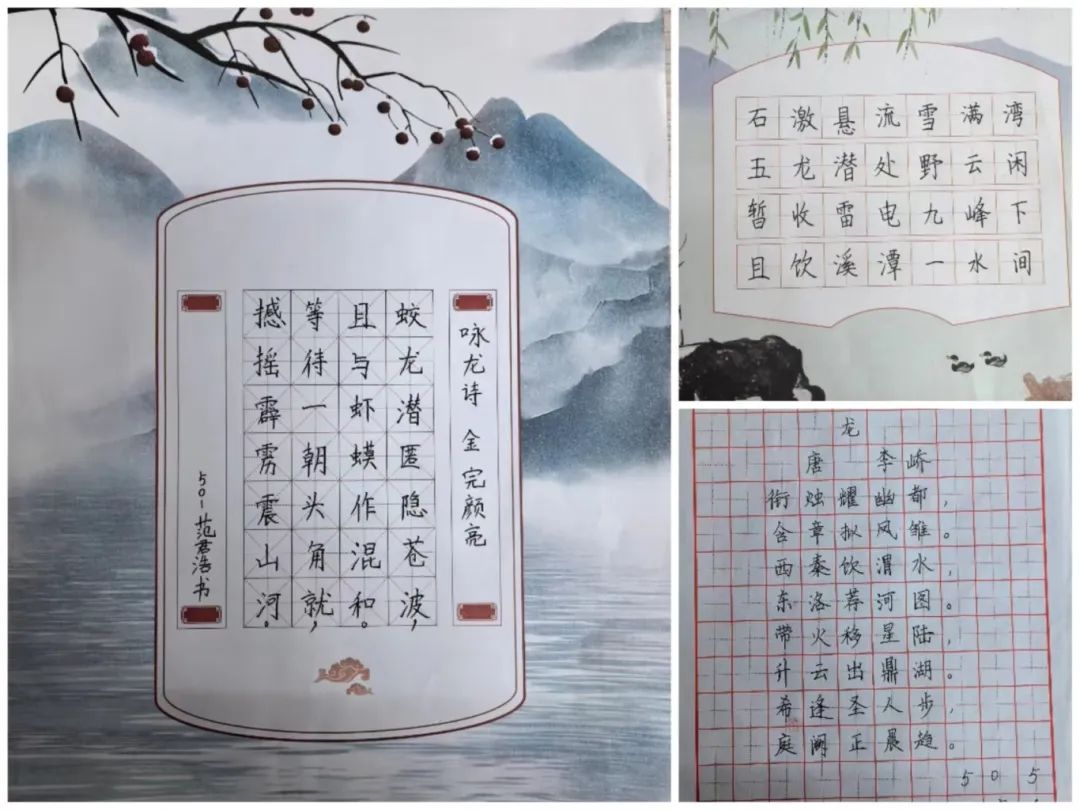 咏龙诗 金 完颜亮
蛟龙潜匿隐苍波，
且与虾蟆作混和。
等待一朝头角就，
撼摇霹雳震山河。
501 范君浩书
石激悬流雪满湾
五龙潜处野云闲
暂收雷电九峰下
且饮溪潭一水间
龙
唐 李峤
衔烛耀幽都，
含章拟凤雏。
西秦饮渭水，
东洛荐河图。
带火移星陆，
升云出鼎湖。
希逢圣人步，
庭阙正晨趋。
505